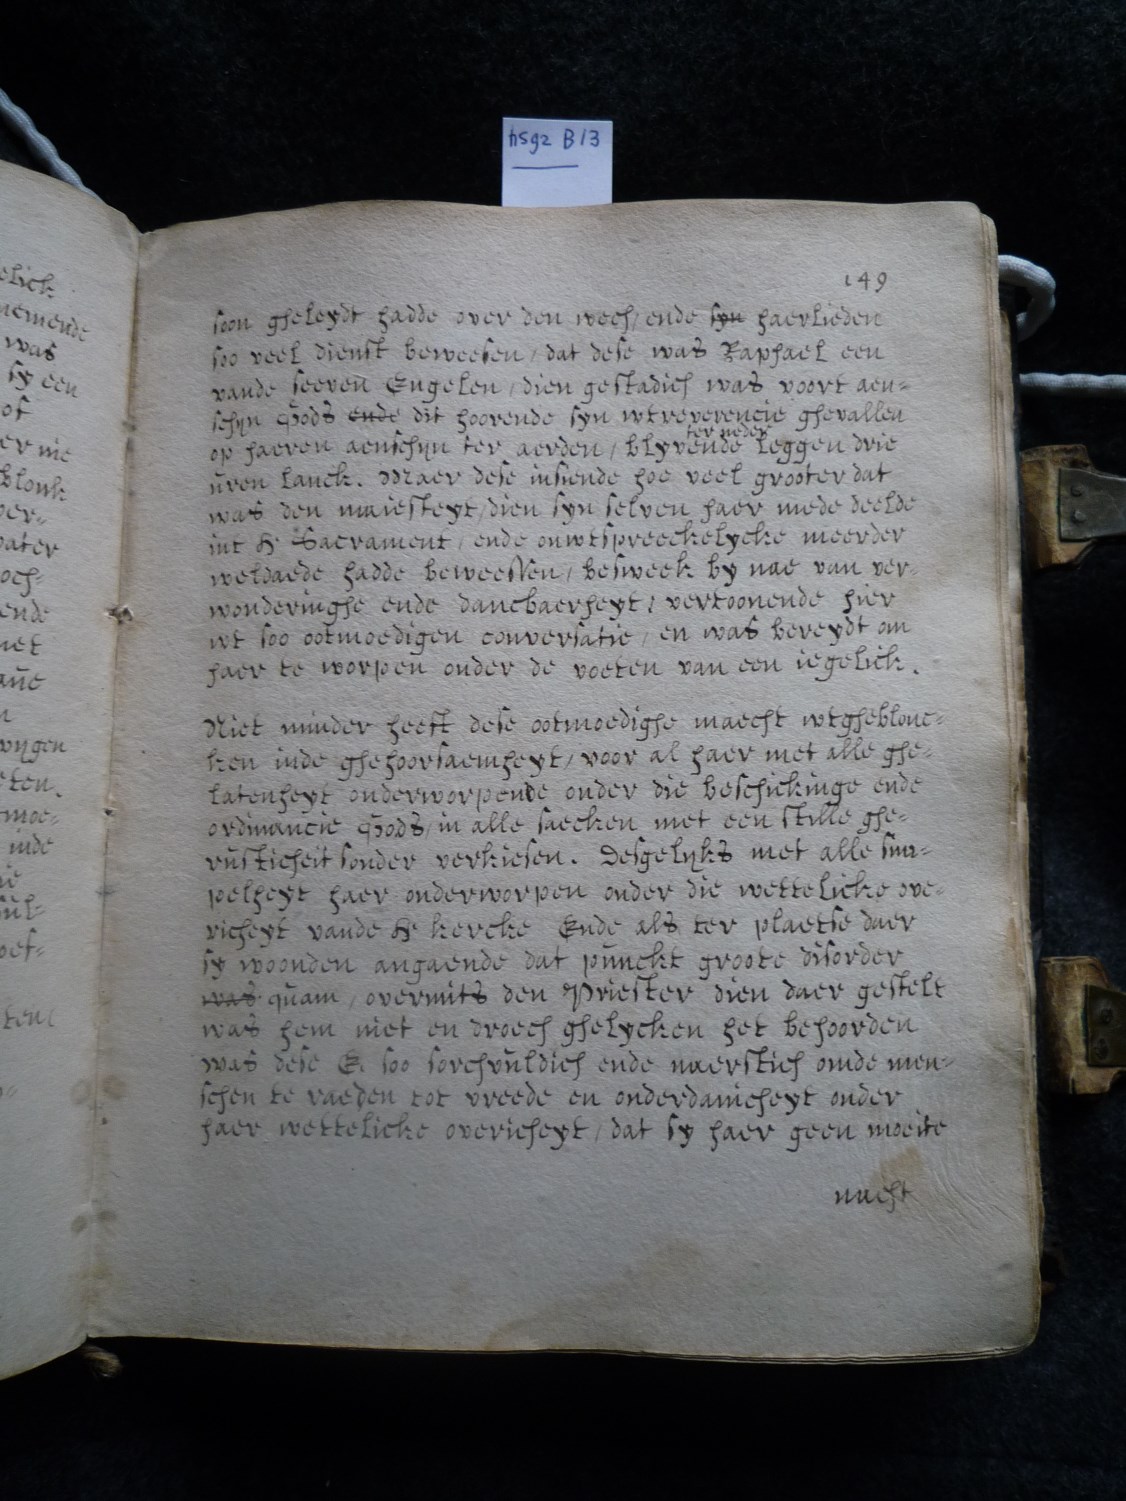 hsg2 B13
149
soon gheleydt hadde over den wech, ende syn haerlieden
soo veel dienst beweesen, dat dese was Raphael een
vande seeven Engelen, dien gestadich was voort aen-
schyn Gods ende dit hoorende syn wtreverencie ghevallen
ter neder
op haeren aenschyn ter aerden, blyvende leggen drie
uren lanck. Maer dese insiende hoe veel grooter dat
was den maiesteyt, dien syn selven haer mede deelde
int H Sacrament, ende onwtspreeckelycke meerder
weldaede hadde beweessen, besweek by nae van ver-
wonderinghe ende danckbaerheyt, vertoonende hier
wt soo ootmoedigen conversatie, en was bereydt om
haer te worpen onder de voeten van een iegelick.
Niet minder heeft dese ootmoedighe maecht wtgheblonc-
ken inde ghehoorsaemheyt, voor al haer met alle ghe-
latenheyt onderworpende onder die beschickinge ende
ordinancie Gods, in alle saecken met een stille ghe-
rusticheit sonder verkiesen. Desgelyks met alle sim-
pelheyt haer onderworpen onder die wettelicke ove-
richeyt vande H kercke Ende als ter plaetse daer
sy woonden angaende dat punckt groote disorder
was quam, overmits den Priester dien daer gestelt
was hem niet en droech ghelycken het behoorden
was dese E. soo sorchvuldich ende naerstich omde men-
schen te raeden tot vreede en onderdanicheyt onder
haer wettelicke overicheyt, dat sy haer geen moeite
nacht
elick
nemende
was
sy een
of
er nie
blonk
ver-
pater
och-
ende
met
wygen
ten.
moe-
inde